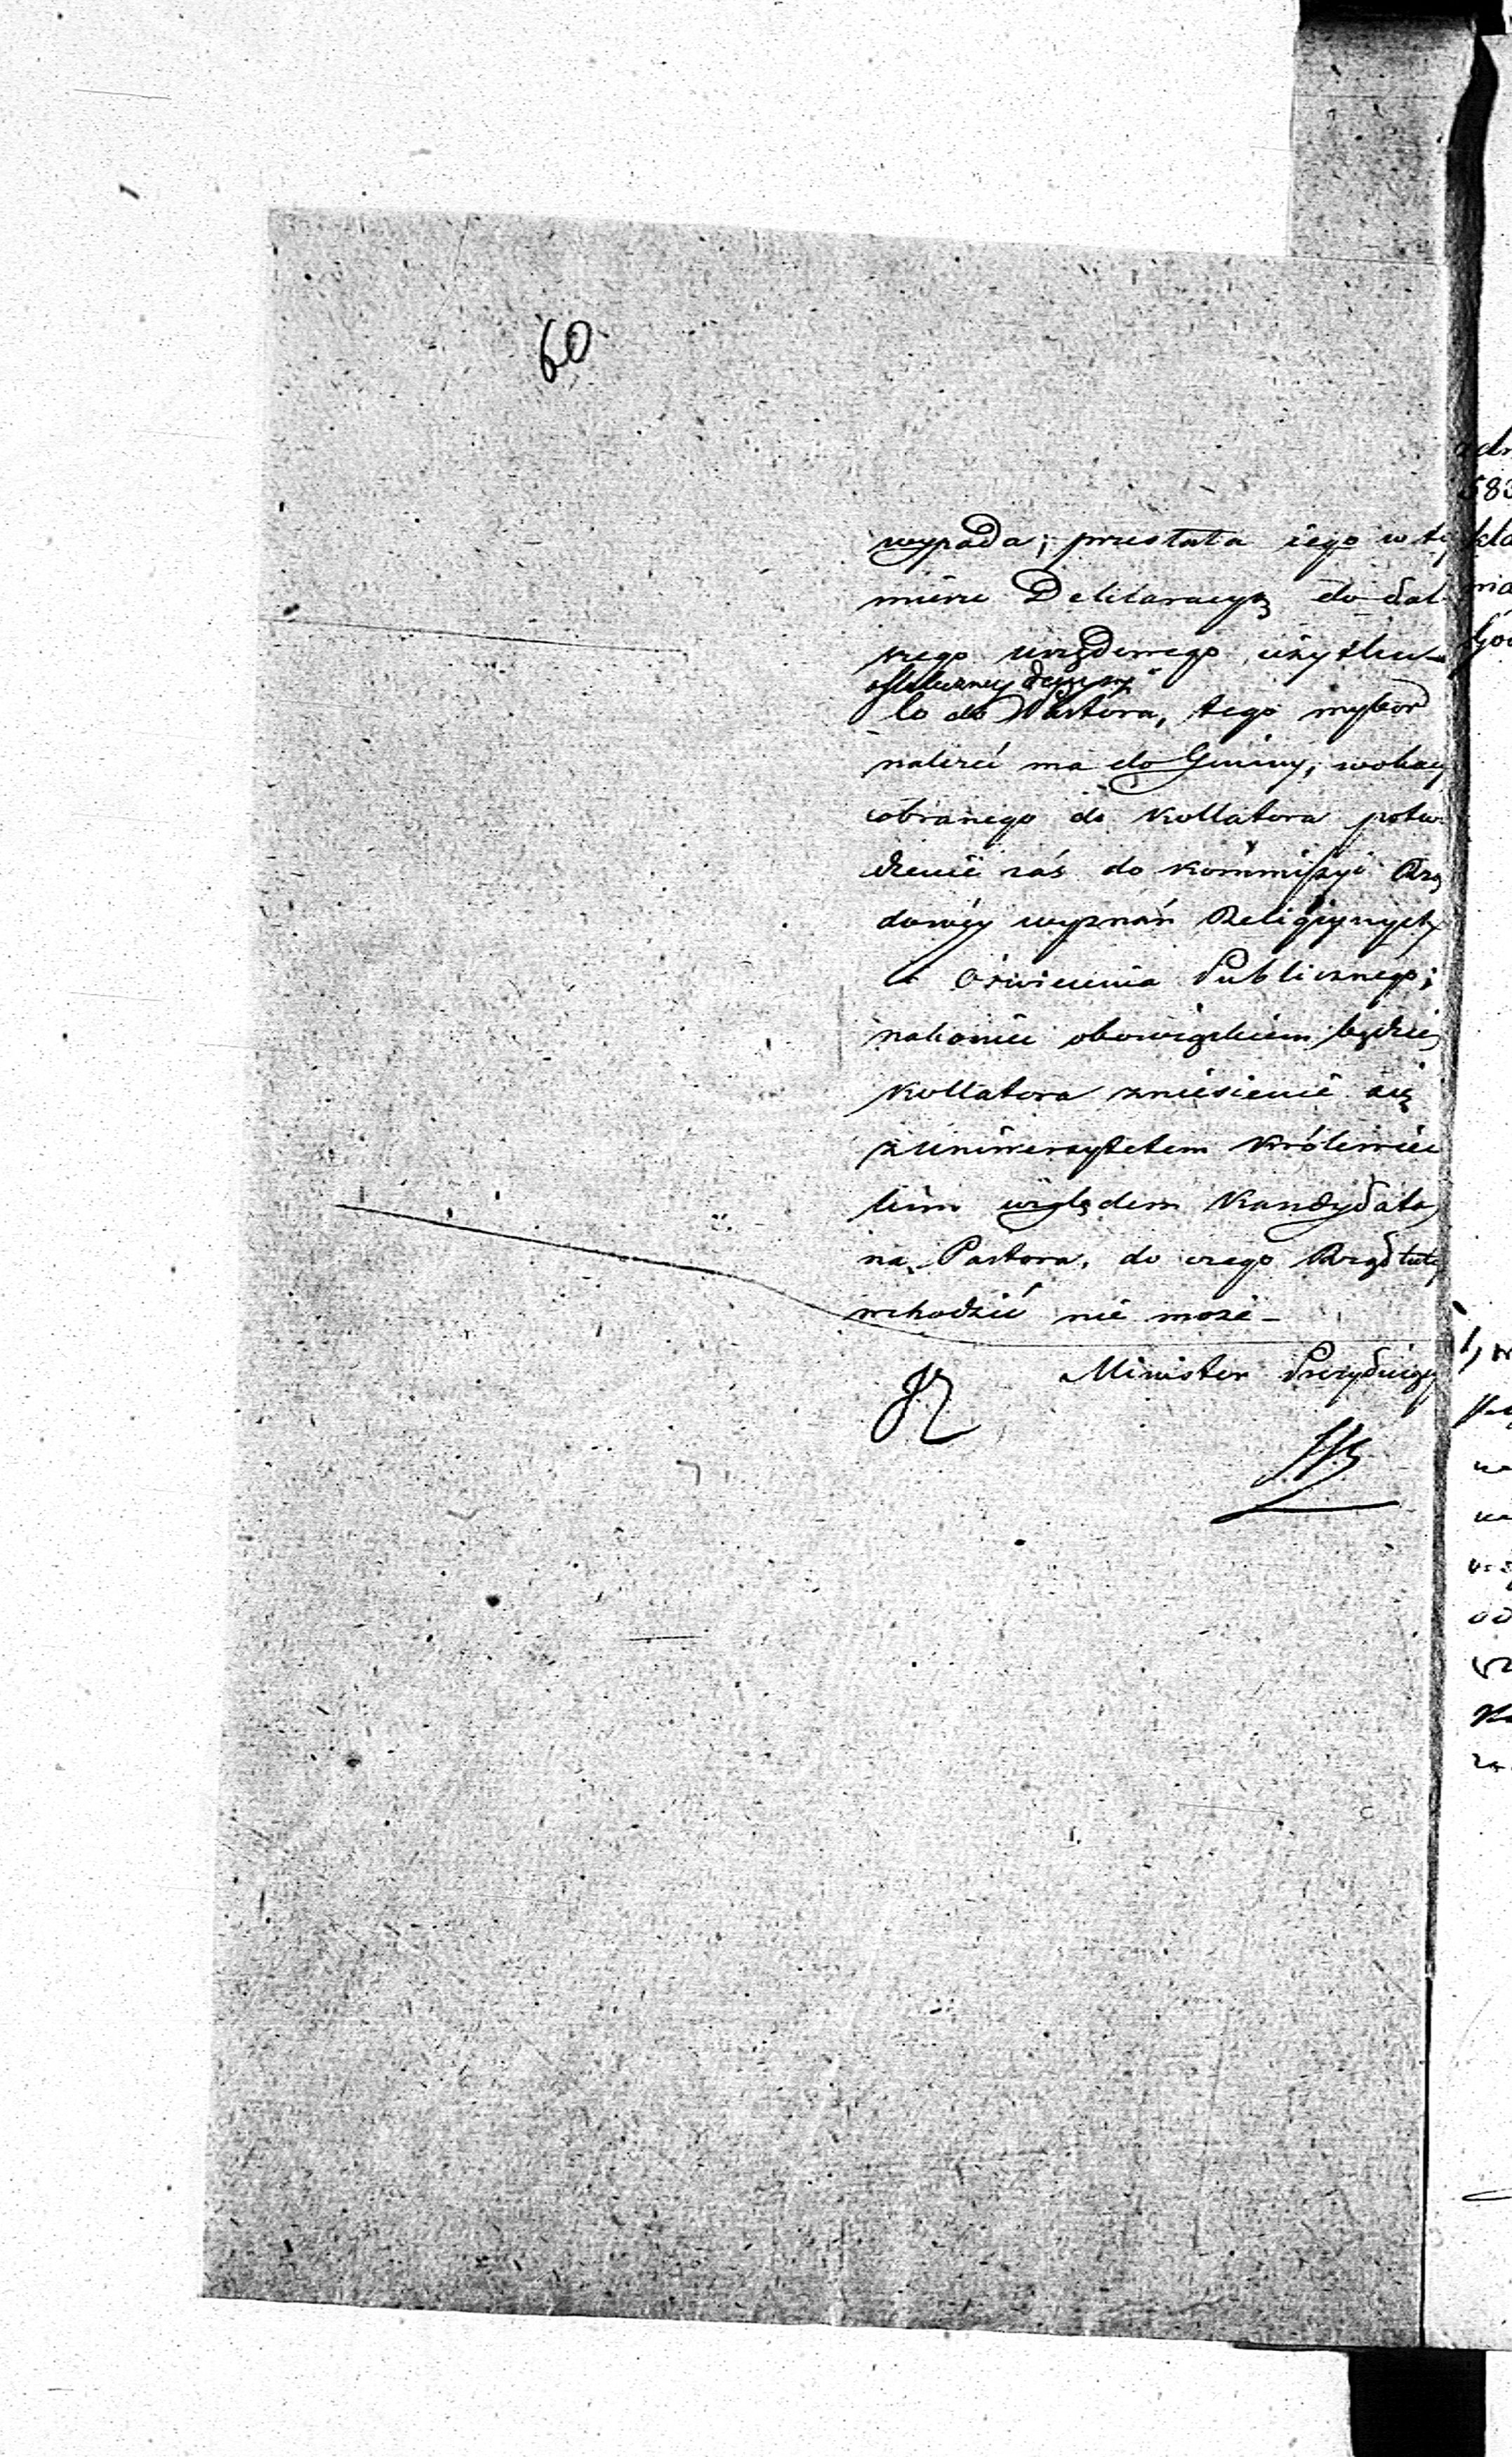 60
wypada; przesłała iego w tę
mierze Deklaracyą do dal
szego urzędowego użytku
co do Pastora, tego wybor
należeć ma do Gminy, wokacy
obranego do Kollatora potw
dzenie zaś do Kommissyi Rzą
dowéy wyznań Religiynych
i Oświecenia Publicznego;
nakoniec obowiązkiem będzie
Kollatora zniesienie się
z Uniwersytetem Królewiec
kim względem Kandydata
na Pastora, do czego Rząd tute
wchodzić nie może -
Minister Prezyduiący